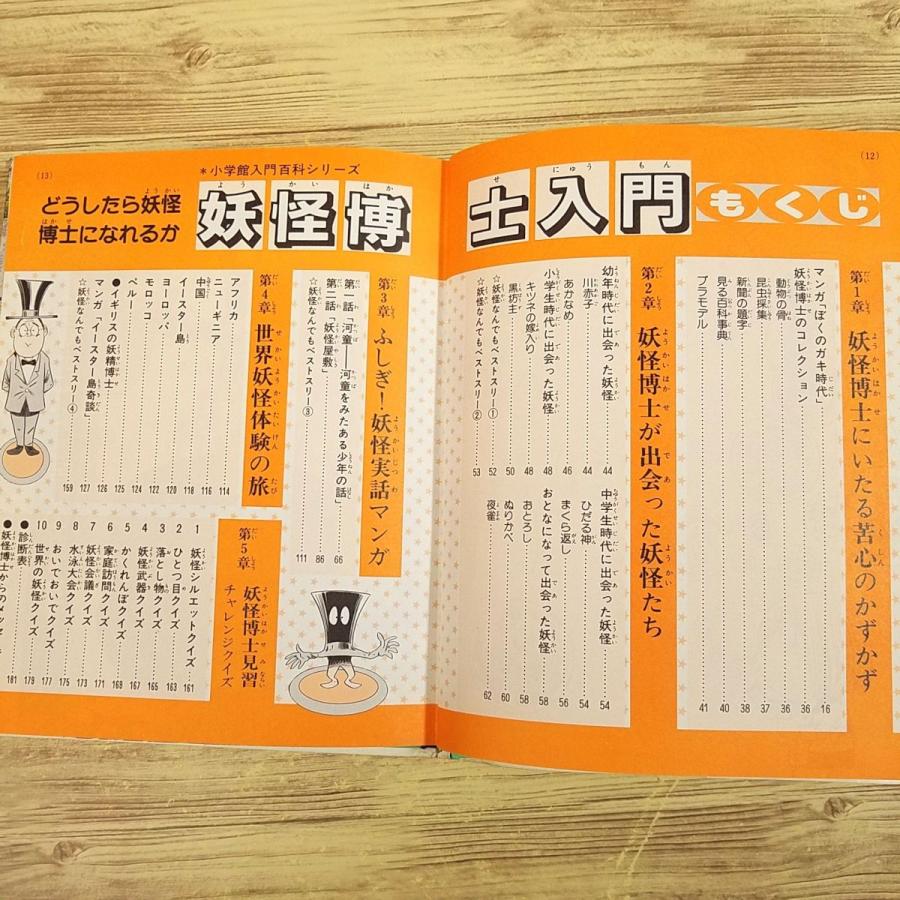 (12)
(13)
*小学館入門百科シリーズ
どうしたら妖怪
博士になれるか
妖怪博士入門もくじ
第1章 妖怪博士にいたる苦心のかずかず
マンガ「ぼくのガキ時代」 16
妖怪博士のコレクション 36
動物の骨 36
昆虫採集 37
新聞の題字 38
見る百科事典 40
プラモデル 41
第2章 妖怪博士が出会った妖怪たち
幼年時代に出会った妖怪 44
川赤子 44
あかなめ 46
小学生時代に出会った妖怪 48
キツネの嫁入り 48
黒坊主 50
☆妖怪なんでもベストスリー① 52
☆妖怪なんでもベストスリー② 53
中学生時代に出会った妖怪 54
ひだる神 54
まくら返し 56
おとなになって出会った妖怪 58
おとろし 58
ぬりかべ 60
夜雀 62
第3章 ふしぎ!妖怪実話マンガ
第一話「河童―河童をみたある少年の話」 66
第二話「妖怪屋敷」 86
☆妖怪なんでもベストスリー③ 111
第4章 世界妖怪体験の旅
アフリカ 114
ニューギニア 116
中国 118
イースター島 120
ヨーロッパ 122
モロッコ 124
ペルー 125
●イギリスの妖精博士 126
マンガ「イースター島奇談」 127
☆妖怪なんでもベストスリー④ 159
第5章 妖怪博士見習
チャレンジクイズ
1 妖怪シルエットクイズ 161
2 ひとつ目クイズ 163
3 落とし物クイズ 165
4 妖怪武器クイズ 167
5 かくれんぼクイズ 168
6 家庭訪問クイズ 171
7 妖怪会議クイズ 173
8 水泳大会クイズ 175
9 おいでおいでクイズ 177
10 世界の妖怪クイズ 179
●診断表 181
●妖怪博士からのメッセ